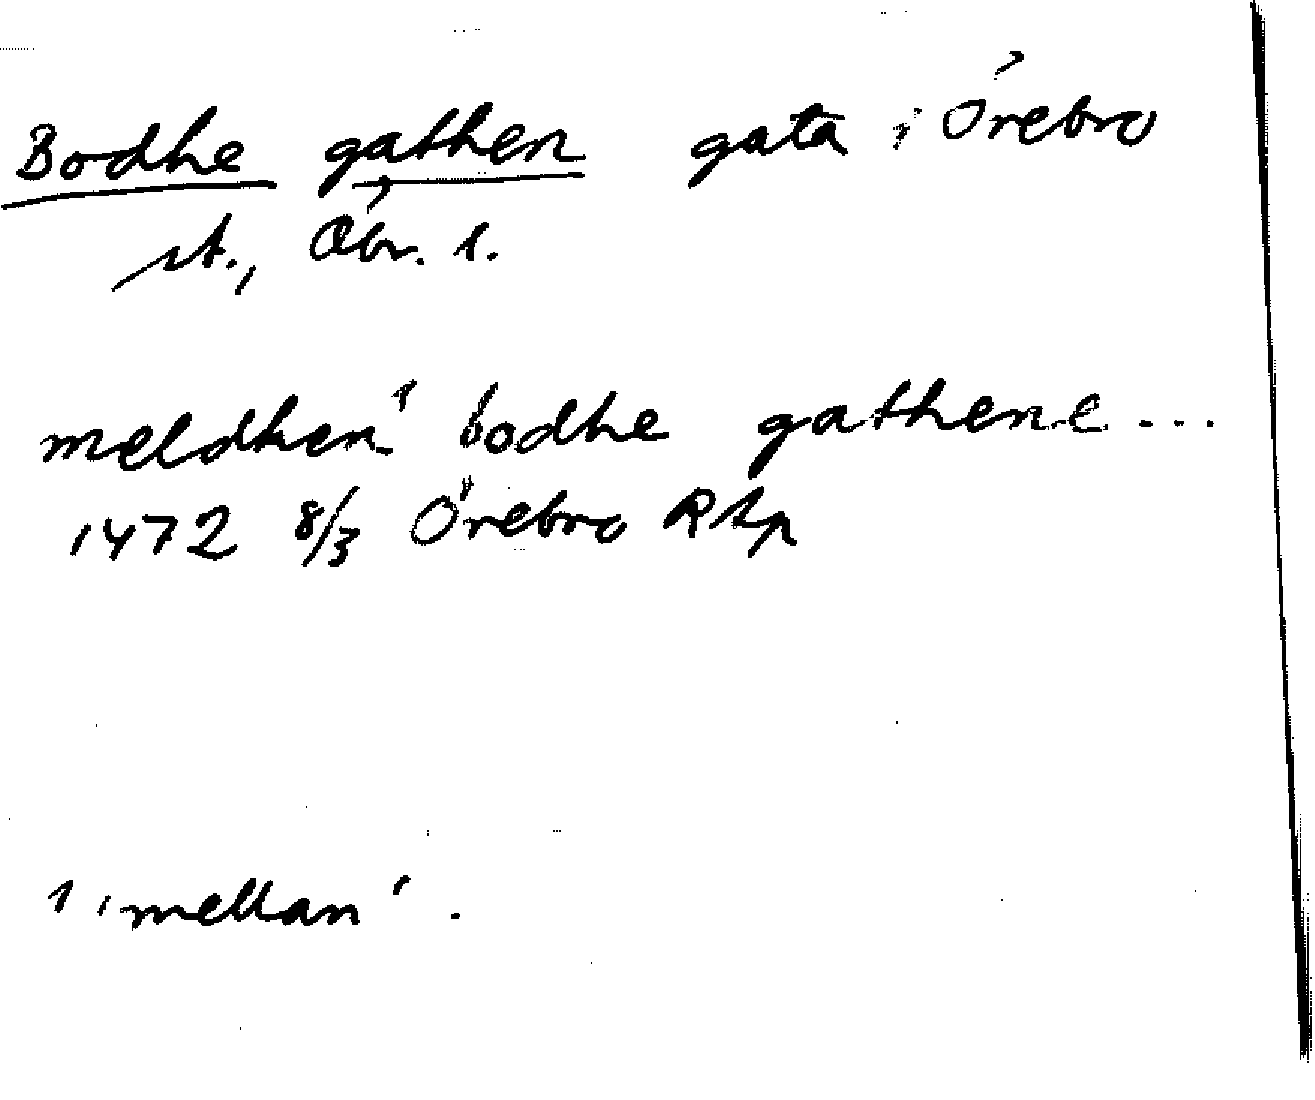 Bodhe gathen gata i Örebro
st., Öbr. l.
meldhen¹ bodhe gathene ...
1472 8/3 Örebro Rtp
¹ 'mellan'.